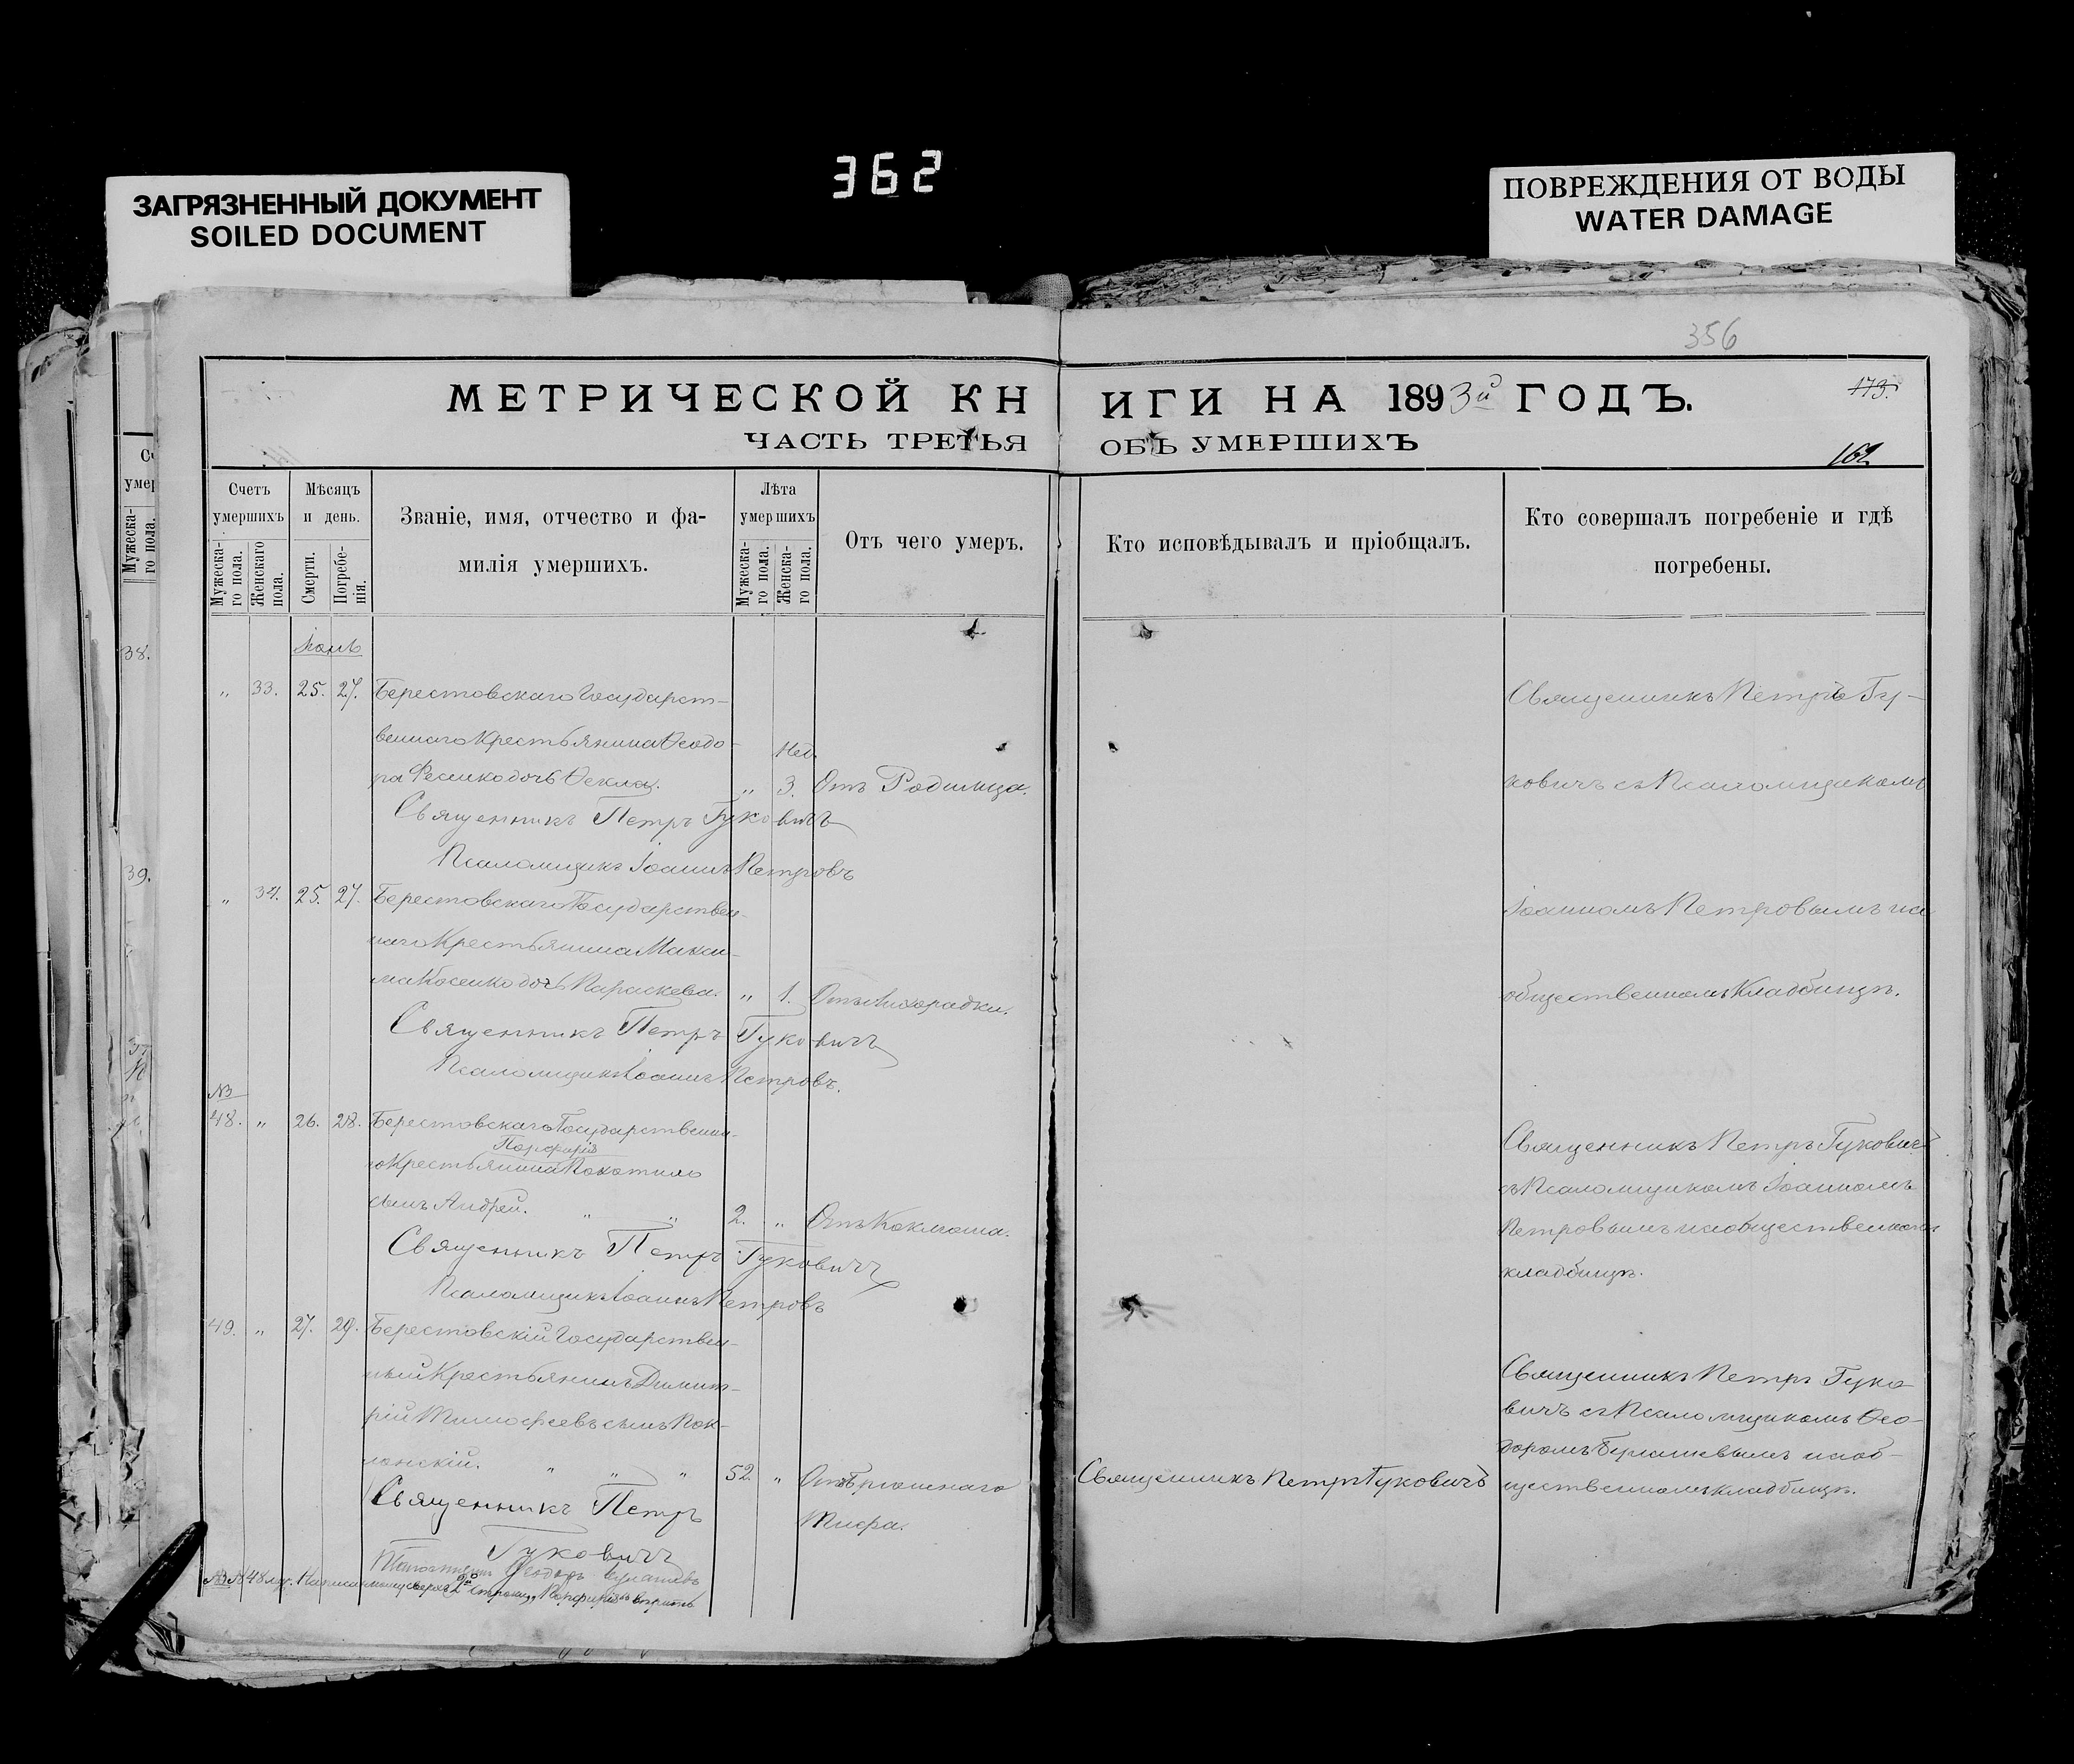 362
ЗАГРЯЗНЕННЫЙ ДОКУМЕНТ
SOILED DOCUMENT
ПОВРЕЖДЕНИЯ ОТ ВОДЫ
WATER DAMAGE
356
МЕТРИЧЕСКОЙ КНИГИ НА 1893й ГОДЪ.
173.
ЧАСТЬ ТРЕТЬЯ ОБЪ УМЕРШИХЪ
162
Счетъ умершихъ
Мужескаго пола.
Женскаго пола.
Мѣсяцъ и день.
Смерти.
Погребенія.
Званіе, имя, отчество и фа-
милія умершихъ.
Лѣта умершихъ
Мужескаго пола.
Женскаго пола.
Отъ чего умеръ.
Кто исповѣдывалъ и пріобщалъ.
Кто совершалъ погребеніе и гдѣ
погребены.
38.
39.
Іюнь
„ 33. 25. 27. Берестовскаго Государст-
веннаго Крестьянина Ѳеодо-
Нед.
ра Фесенко дочь Ѳекла. „ 3. Отъ Родимца.
Священникъ Петръ Гуковичъ
Псаломщикъ Іоаннъ Петровъ
Священникъ Петръ Гу-
ковичъ съ Псаломщикомъ
Іоанномъ Петровымъ на
общественномъ Кладбищѣ.
„ 34. 25. 27. Берестовскаго Государствен-
наго Крестьянина Макси-
ма Косенко дочь Параскева. „ 1. Отъ Лихорадки.
Священникъ Петръ Гуковичъ
Псаломщикъ Іоаннъ Петровъ.
NB
48. „ 26. 28. Берестовскаго Государственна-
Порфирія
го Крестьянина Покотило
сынъ Андрей. „ „ 2. „ Отъ Коклюша.
Священникъ Петръ Гуковичъ
Псаломщикъ Іоаннъ Петровъ
Священникъ Петръ Гуковичъ
съ Псаломщикомъ Іоанномъ
Петровымъ на общественномъ
кладбищѣ.
49. „ 27. 29. Берестовскій Государствен-
ный Крестьянинъ Димит-
рій Тимофеевъ сынъ Пок-
лонскій. „ „ „ 52. „ Отъ Брюшнаго
Тифа.
Священникъ Петръ
Гуковичъ
Священникъ Петръ Гуковичъ
Священникъ Петръ Гуко
вичъ съ Псаломщикомъ Ѳео-
доромъ Булашевымъ на об-
щественномъ кладбищѣ.
Псаломщикъ Ѳеодоръ Булашевъ
NB № 48 муж. Написанному сверхъ 2й строки „Порфирія" вѣрить